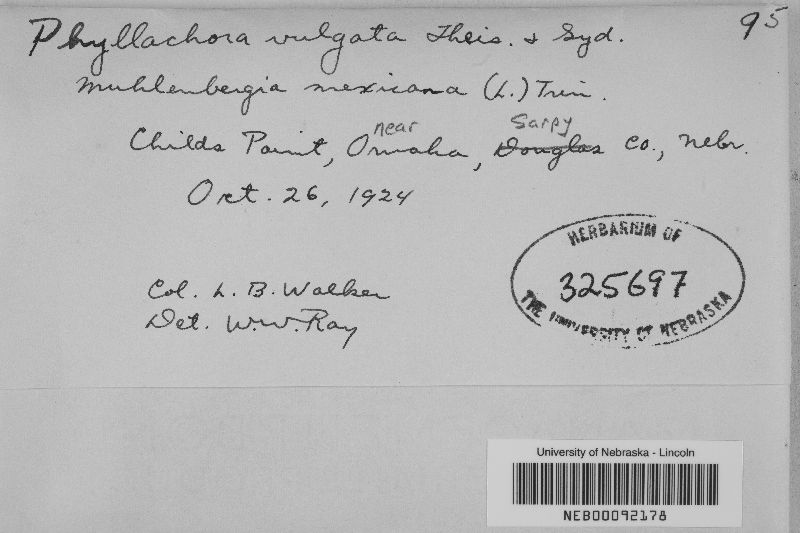 95
Phyllachora vulgata Theis. & Syd.
Muhlenbergia mexicana (L.) Trin.
near Sarpy
Childs Point, Omaha, Douglas Co., Nebr.
Oct. 26, 1924
HERBARIUM OF
325697
THE UNIVERSITY OF NEBRASKA
Col. L. B. Walker
Det. W.W. Ray
University of Nebraska - Lincoln
NEB00092178